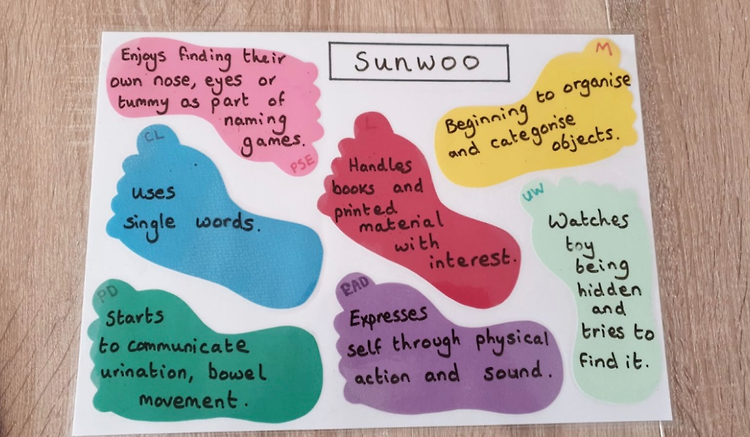 Sunwoo
Enjoys finding their
own nose, eyes or
tummy as part of
naming
games.
PSE
M
Beginning to organise
and categorise
objects.
CL
uses
single words.
L
Handles
books and
printed
material
with
interest.
UW
Watches
toy
being
hidden
and
tries to
find it.
PD
Starts
to communicate
urination, bowel
movement.
EAD
Expresses
self through physical
action and sound.